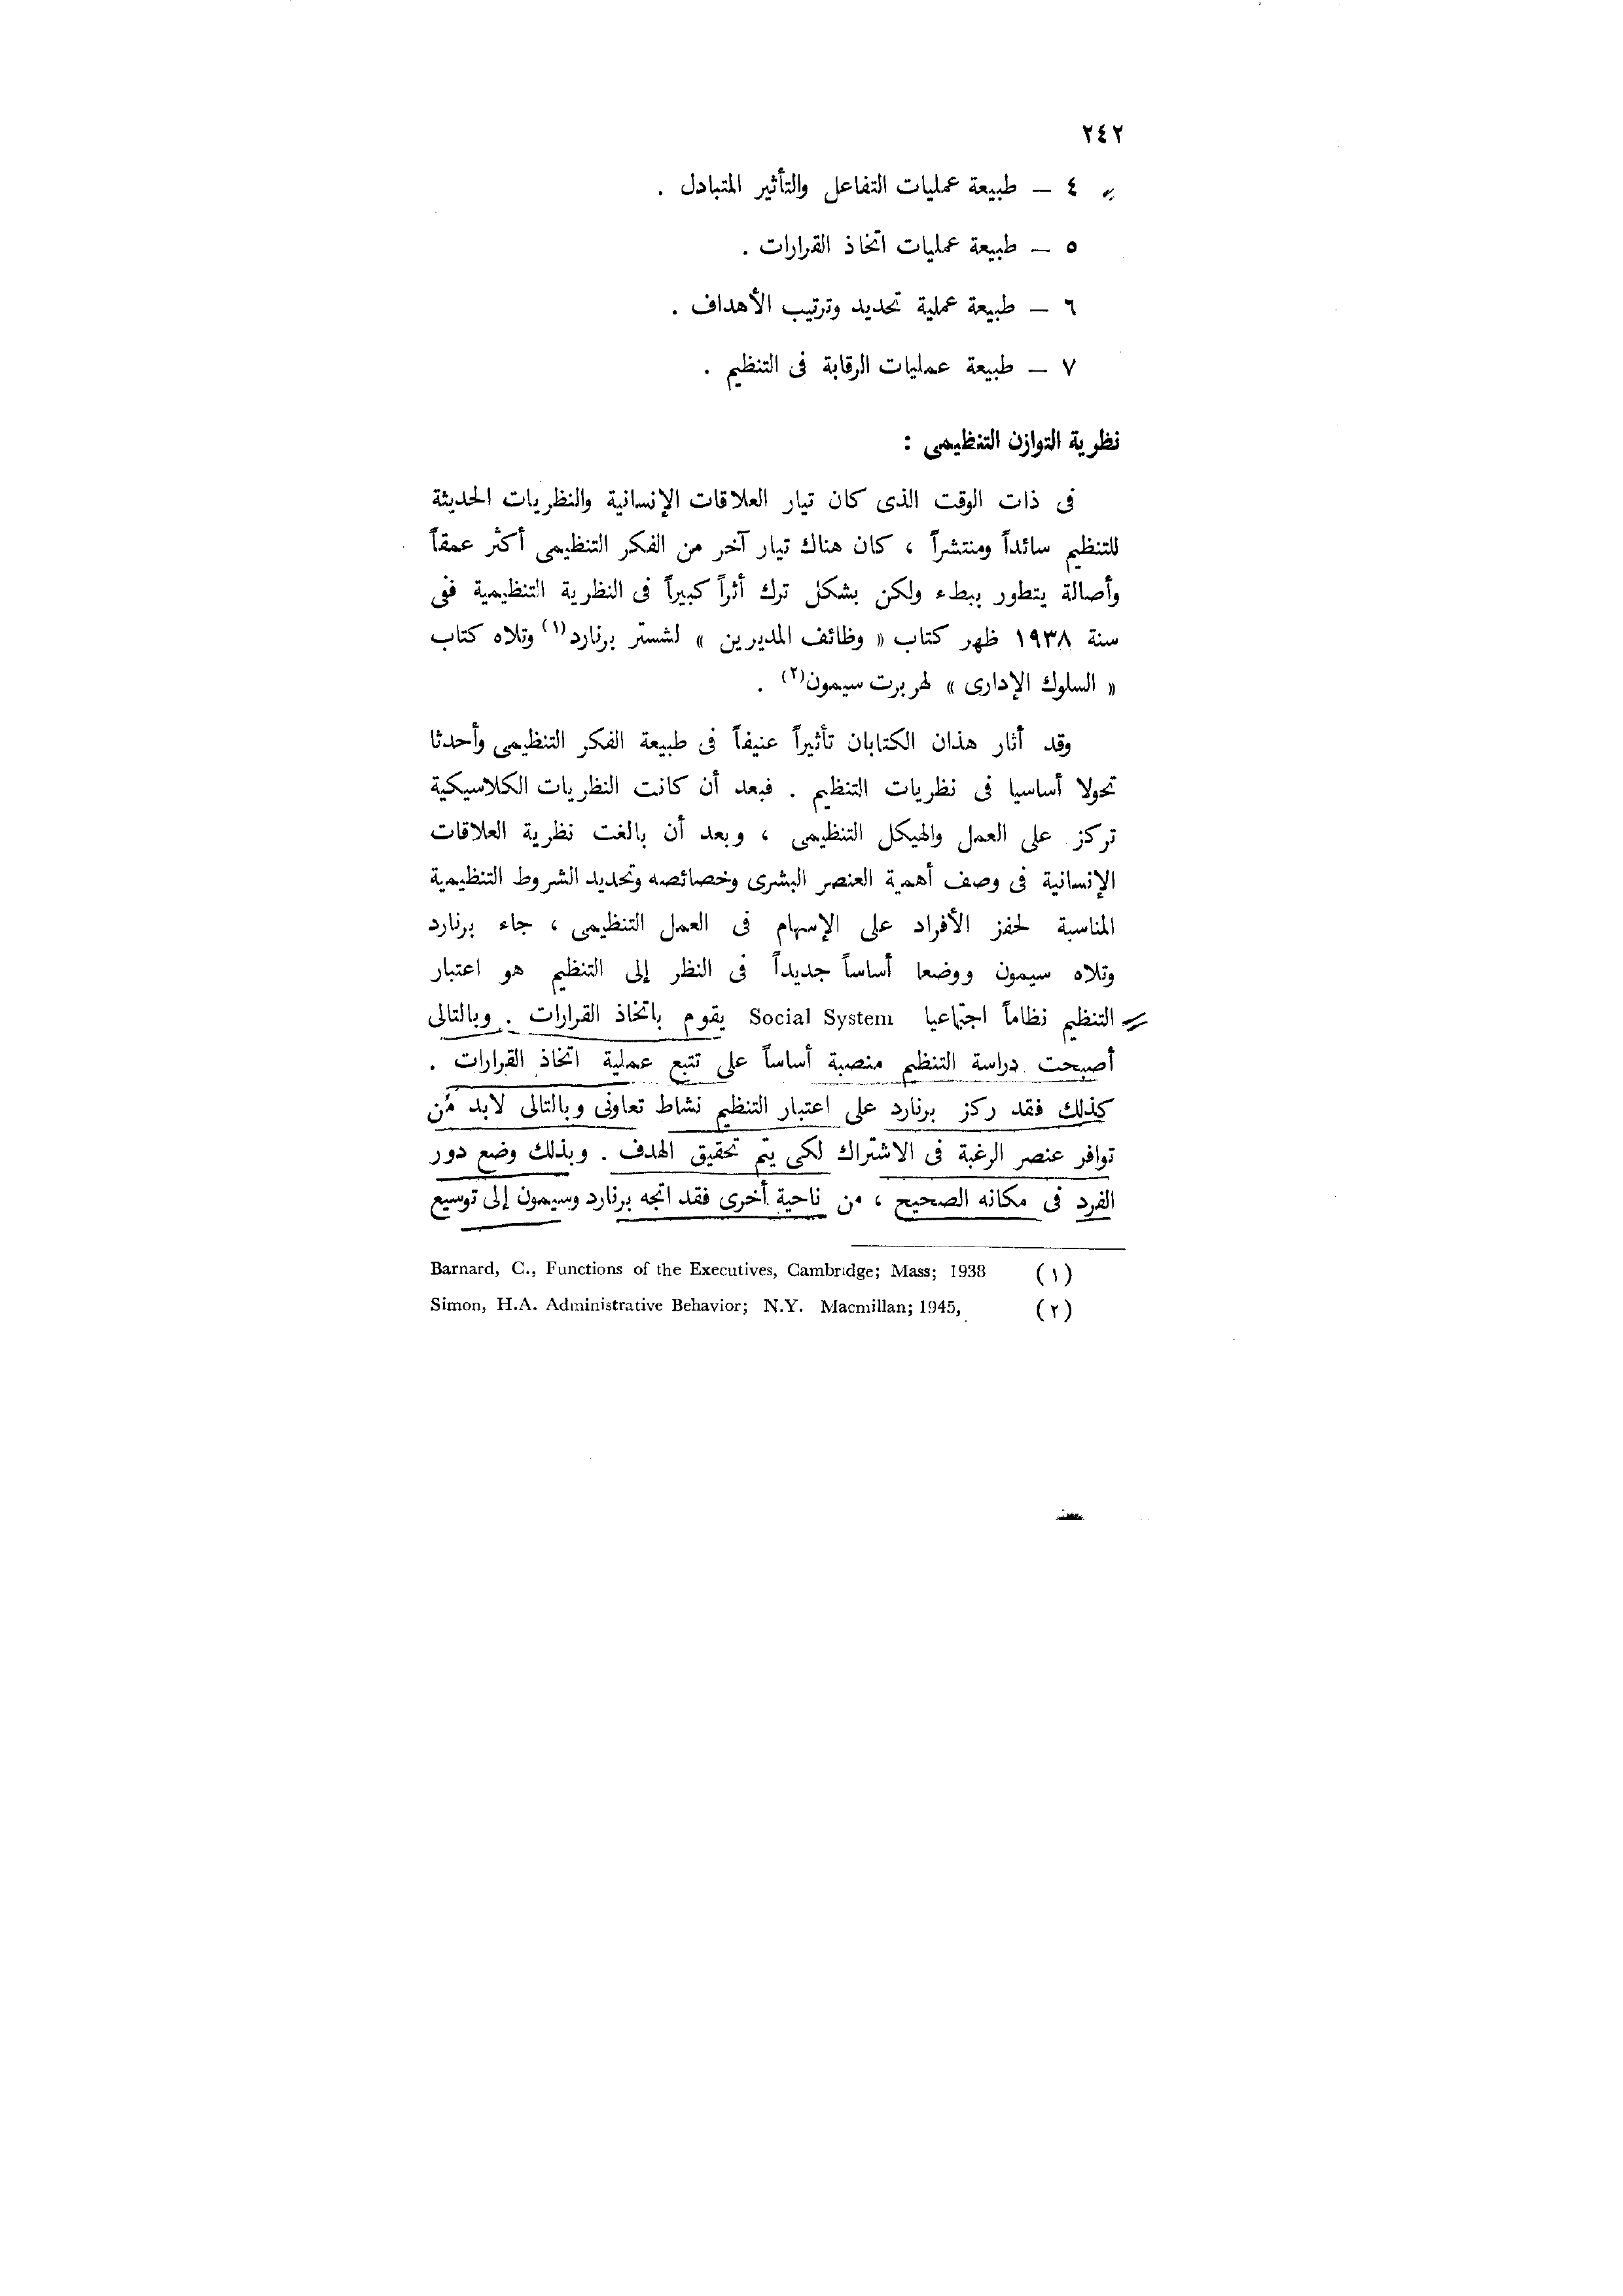 ٢٤٢
٤ — طبيعة عمليات التفاعل والتأثير المتبادل .
٥ — طبيعة عمليات اتخاذ القرارات .
٦ — طبيعة عملية تحديد وترتيب الأهداف .
٧ — طبيعة عمليات الرقابة فى التنظيم .
نظرية التوازن التنظيمى :
فى ذات الوقت الذى كان تيار العلاقات الإنسانية والنظريات الحديثة
للتنظيم سائداً ومنتشراً ، كان هناك تيار آخر من الفكر التنظيمى أكثر عمقاً
وأصالة يتطور ببطء ولكن بشكل ترك أثراً كبيراً فى النظرية التنظيمية ففى
سنة ١٩٣٨ ظهر كتاب « وظائف المديرين » لشستر برنارد(١) وتلاه كتاب
« السلوك الإدارى » لهربرت سيمون(٢) .
وقد أثار هذان الكتابان تأثيراً عنيفاً فى طبيعة الفكر التنظيمى وأحدثا
تحولا أساسيا فى نظريات التنظيم . فبعد أن كانت النظريات الكلاسيكية
تركز على العمل والهيكل التنظيمى ، وبعد أن بالغت نظرية العلاقات
الإنسانية فى وصف أهمية العنصر البشرى وخصائصه وتحديد الشروط التنظيمية
المناسبة لحفز الأفراد على الإسهام فى العمل التنظيمى ، جاء برنارد
وتلاه سيمون ووضعا أساساً جديداً فى النظر إلى التنظيم هو اعتبار
التنظيم نظاماً اجتماعيا Social System يقوم باتخاذ القرارات . وبالتالى
أصبحت دراسة التنظيم منصبة أساساً على تتبع عملية اتخاذ القرارات .
كذلك فقد ركز برنارد على اعتبار التنظيم نشاط تعاونى وبالتالى لابد من
توافر عنصر الرغبة فى الاشتراك لكى يتم تحقيق الهدف . وبذلك وضع دور
الفرد فى مكانه الصحيح ، من ناحية أخرى فقد اتجه برنارد وسيمون إلى توسيع
Barnard, C., Functions of the Executives, Cambridge; Mass; 1938 (١)
Simon, H.A. Administrative Behavior; N.Y. Macmillan; 1945, (٢)